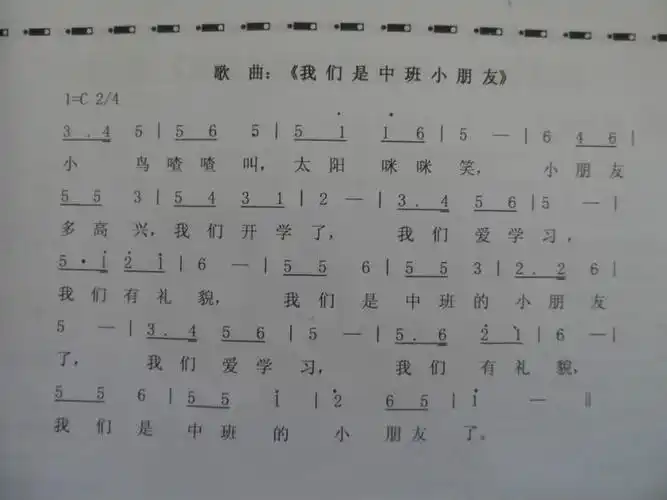 歌 曲：《我 们 是 中 班 小 朋 友》
1=C 2/4
3 . 4 5 | 5 6 5 | 5 i i 6 | 5 — | 6 4 6 |
小 鸟 喳 喳 叫， 太 阳 咪 咪 笑， 小 朋 友
5 5 3 | 5 4 3 1 | 2 — | 3 . 4 5 6 | 5 — |
多 高 兴， 我 们 开 学 了， 我 们 爱 学 习，
5 · i 2̇ i | 6 — | 5 5 6 | 5 5 3 | 2 . 2 6 |
我 们 有 礼 貌， 我 们 是 中 班 的 小 朋 友
5 — | 3 . 4 5 6 | 5 — | 5 . 6 2̇ i | 6 — |
了， 我 们 爱 学 习， 我 们 有 礼 貌，
5 5 6 | 5 5 i | 2̇ 6 5 | i — ‖
我 们 是 中 班 的 小 朋 友 了。